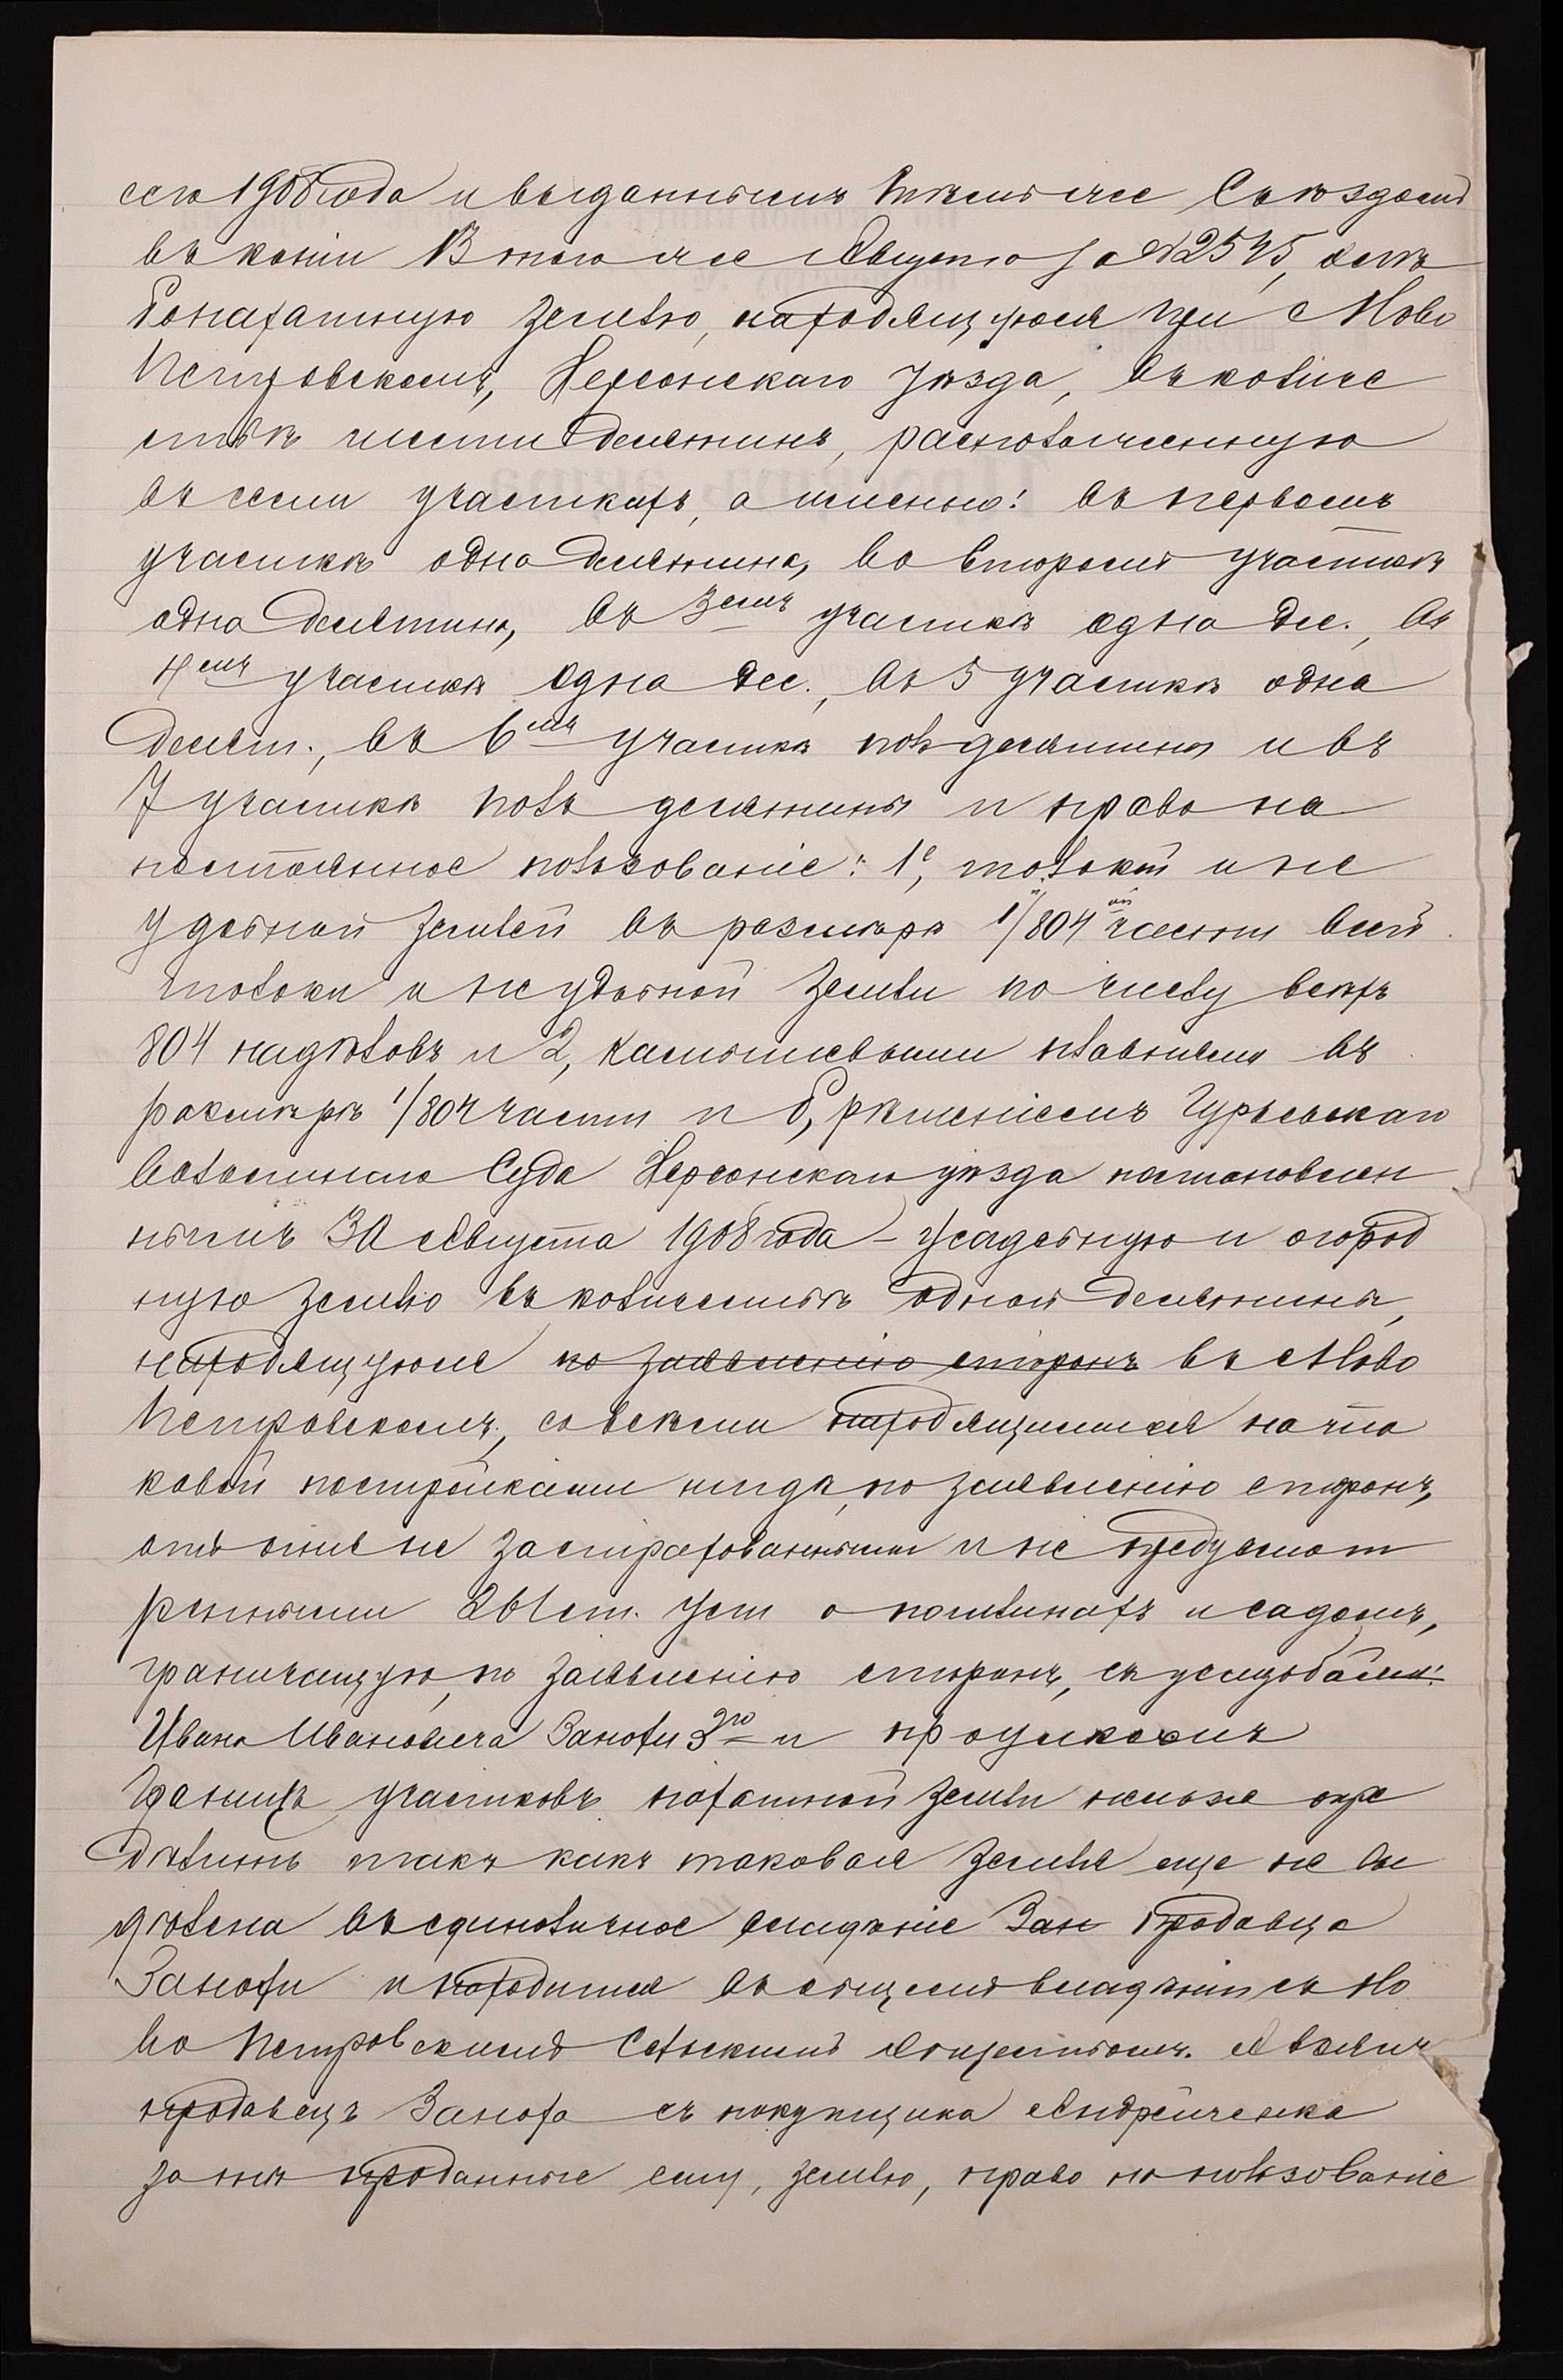 сего 1908 года и выданнымъ тѣмъ же Съѣздомъ
въ копіи 13 того же Августа за № 2545,
пахатную землю, находящуюся при с Ново
Петровскомъ, Херсонскаго уѣзда, въ количе
ствѣ шести десятинъ, расположенную
въ семи участкахъ, а именно: въ первомъ
участкѣ одна десятина, во второмъ участкѣ
одна десятина, въ 3емъ участкѣ одна дес., въ
4емъ участкѣ одна дес., въ 5 участкѣ одна
десят., въ 6мъ участкѣ полъ десятины и въ
7 участкѣ полъ десятины и право на
постоянное пользованіе: 1, толокой и не
удобной землей въ размѣрѣ 1/804 ой части всей
толоки и неудобной земли по числу всѣхъ
804 надѣловъ и 2, камышевыми плавнями въ
размѣрѣ 1/804 части и б, рѣшеніемъ Гурьевскаго
Волостного Суда Херсонскаго уѣзда постановлен
нымъ 30 Августа 1908 года – усадебную и огород
ную землю въ количествѣ одной десятины,
находящуюся по заявленію сторонъ въ с Ново
Петровскомъ, со всѣми находящимися на та
ковой постройками нигдѣ, по заявленію сторонъ,
отъ огня не застрахованными и не предусмот
ренными 261 ст. Уст о пошлинахъ и садомъ,
граничащую, по заявленію сторонъ, съ усадьбами:
Ивана Ивановича Занохи 3го и проулкомъ
Границъ участковъ пахатной земли нельзя опре
дѣлить такъ какъ таковая земля еще не вы
дѣлена въ единоличное владѣніе Зан продавца
Занохи и находится въ общемъ владѣніи съ Но
во Петровскимъ Сельскимъ Обществомъ. А взялъ
продавецъ Заноха съ покупщика Андрейченка
за имъ проданные ему, землю, право на пользованіе